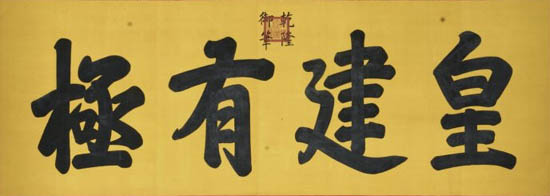 乾隆
御筆
皇建有極